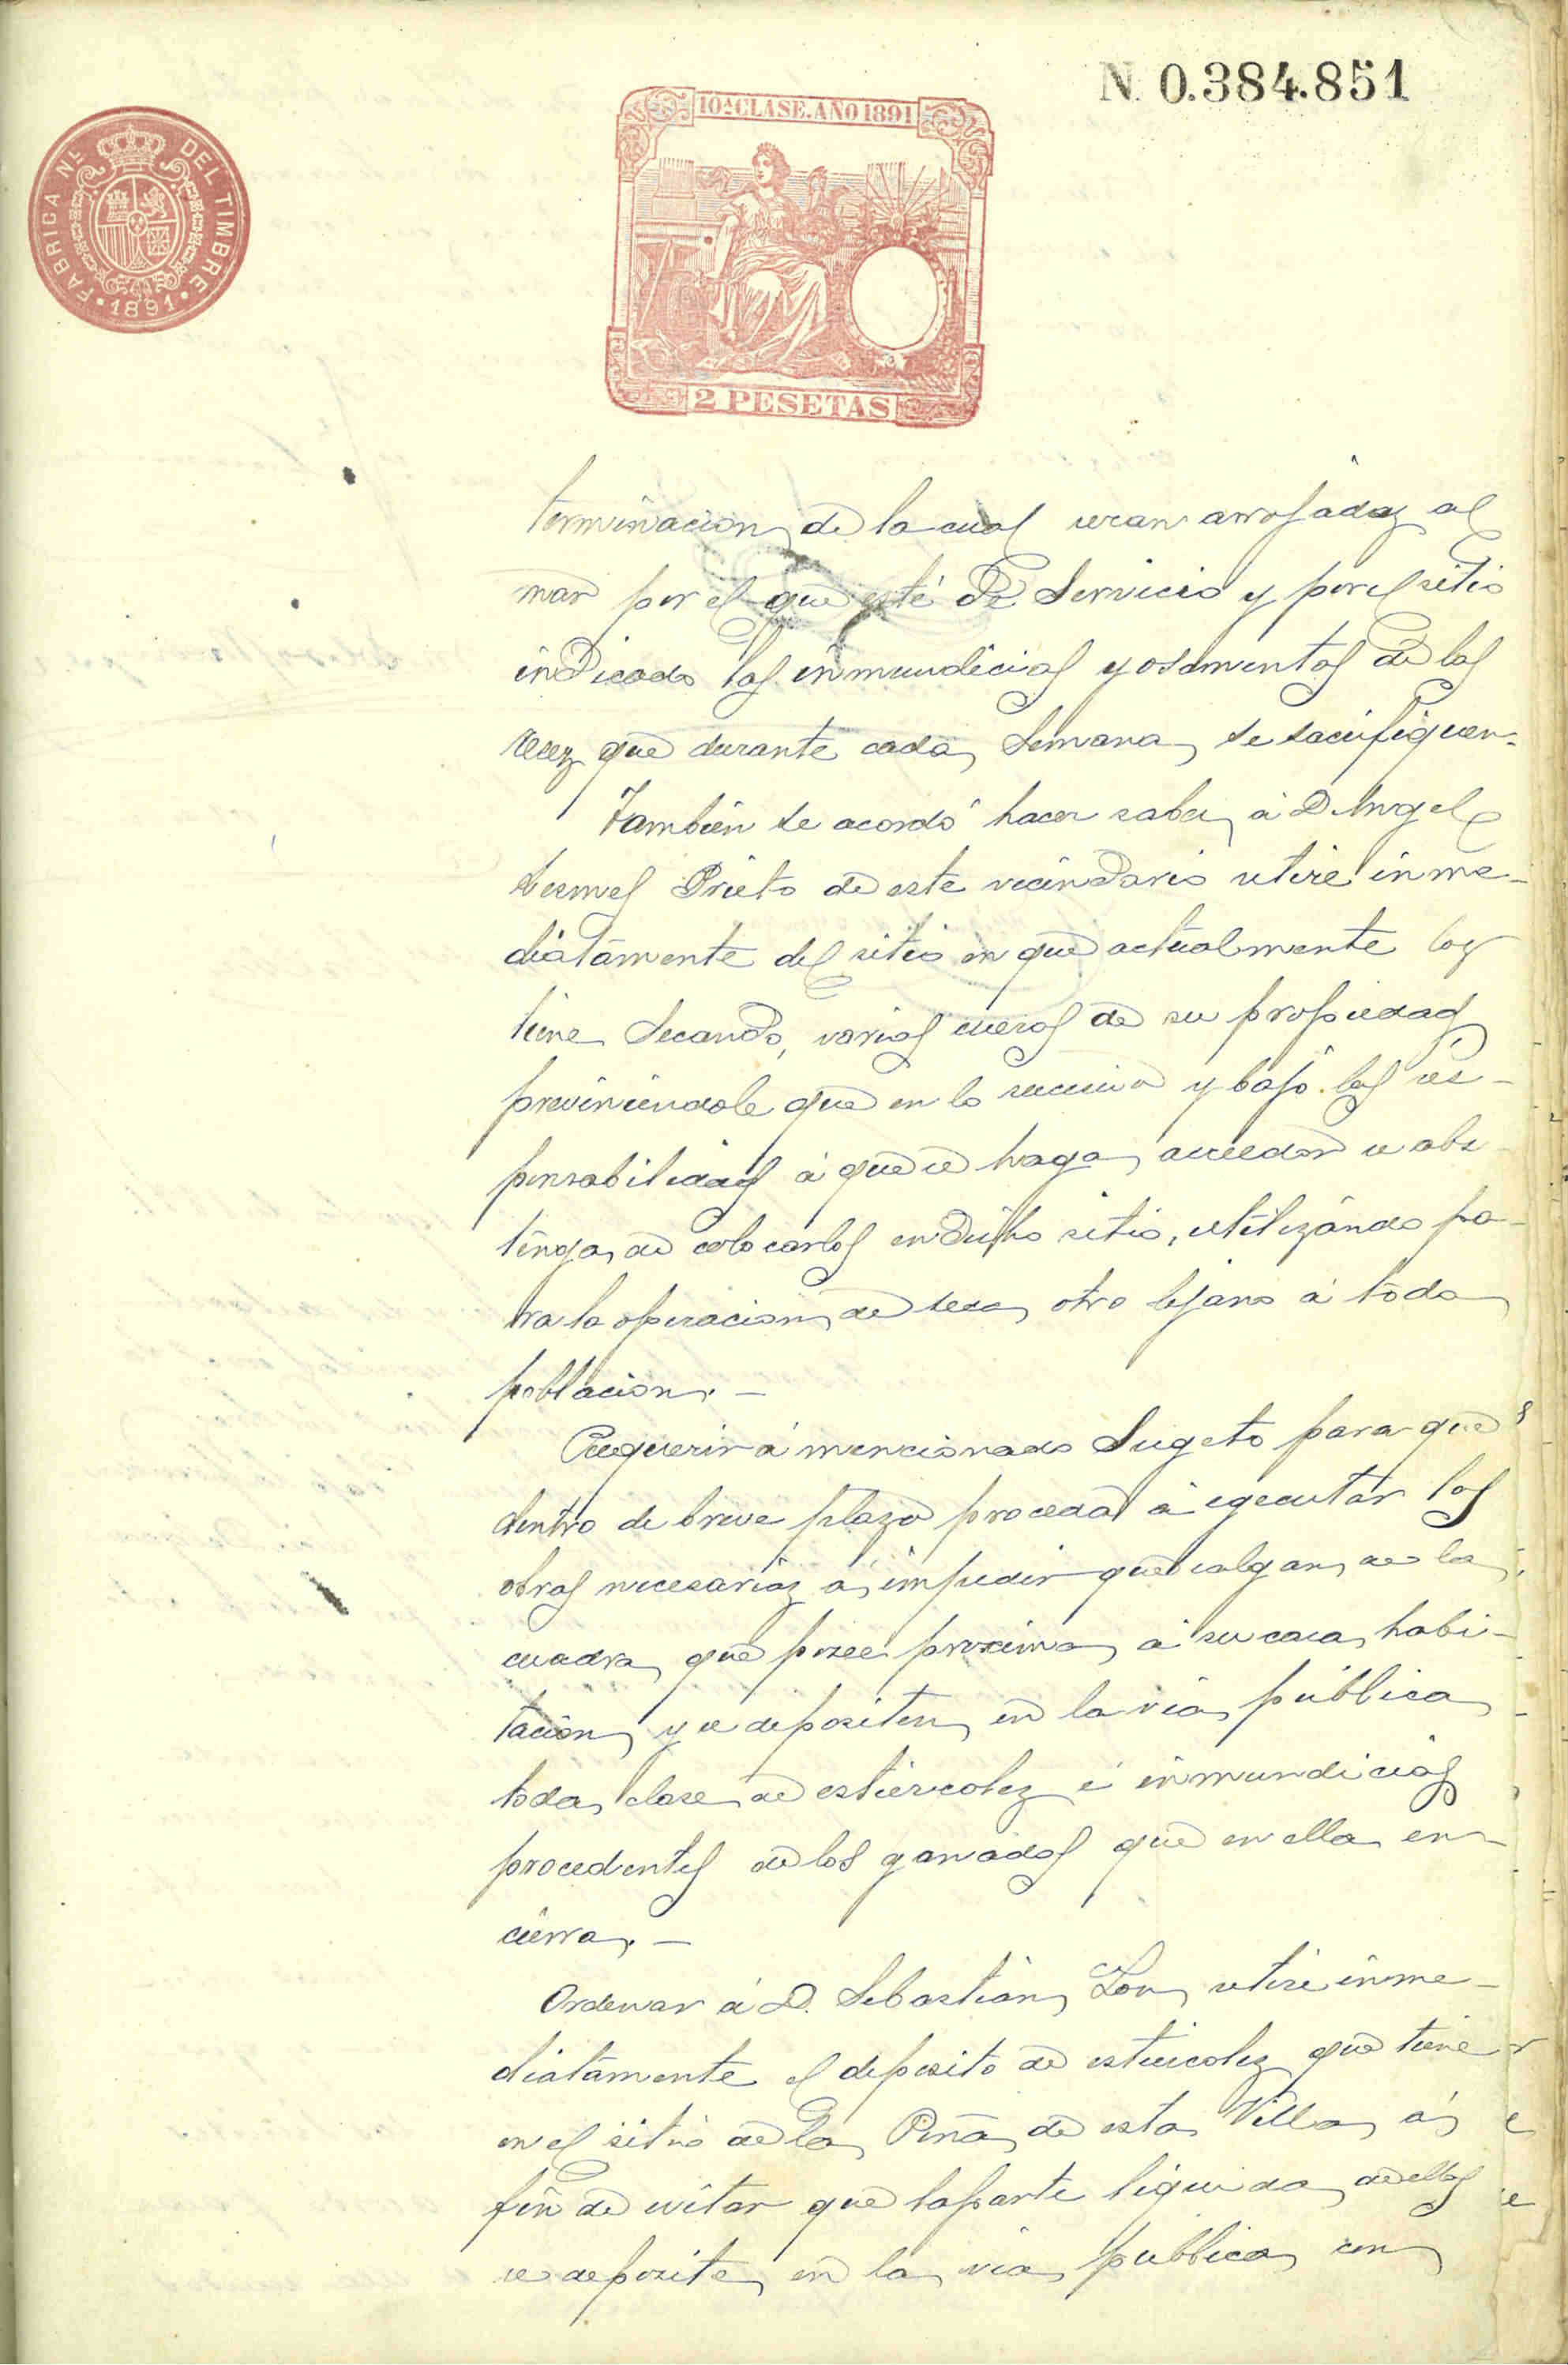 N. 0.384.851
10ª CLASE. AÑO 1891
FABRICA NL DEL TIMBRE
1891
2 PESETAS
terminacion de la cual seran arrojadas al
mar por el que esté de Servicio y por el sitio
indicado las inmundicias y osamentas de las
reces que durante cada Semana se sacrifiquen.
Tambien se acordó hacer saber á D. Angel
Lesmes Prieto de este vecindario retire inme-
diatamente del sitio en que actualmente los
tiene Secando, varios cueros de su propiedad
previniendole que en lo sucesivo y bajo las res-
ponsabilidad á que se haga acreedor se abs-
tenga de colocarlos en dicho sitio, utilizando pa-
ra la operacion de seca otro lejano á toda
poblacion. -
Requerir á mencionado Sugeto para que
dentro de breve plazo proceda á egecutar las
obras necesarias á impedir que salgan de la
cuadra que posee proxima á su casa habi-
tacion y se depositen en la via pública
toda clase de estiercoles é inmundicias
procedentes de los ganados que en ella en-
cierra. -
Ordenar á D. Sebastian Lon retire inme-
diatamente el deposito de estiercoles que tiene
en el sitio de la Peña de esta Villa á
fin de evitar que la parte liquida de ellos
se deposite en la via publica con